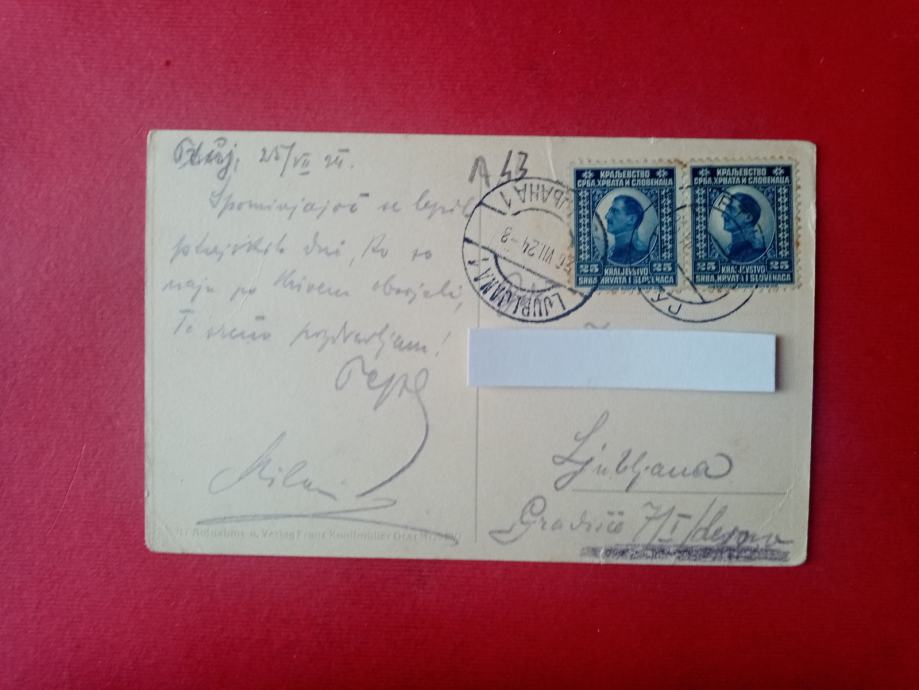 Ptuj, 25/VII 24.
Spominjajoč se lepih
ptujskih dni, ko so
naju po krivem obsojali,
Te srčno pozdravljam!
Pepe
Milan
Aufnahme u. Verlag Franz Knollmüller Graz
A 43
LJUBLJANA 1
ЉУБЉАНА 1
VII.24-8
КРАЉЕВСТВО
СРБА, ХРВАТА И СЛОВЕНАЦА
25 KRALJEVSTVO 25
SRBA, HRVATA I SLOVENACA
КРАЉЕВСТВО
СРБА, ХРВАТА И СЛОВЕНАЦА
25 KRALJEVSTVO 25
SRBA, HRVATA I SLOVENACA
Ljubljana
Gradišče 7/I/desno